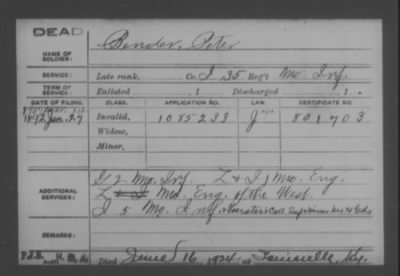 DEAD
Bender, Peter
NAME OF SOLDIER:
SERVICE: Late rank, Co. I 35 Reg't Mo. Inf.
TERM OF SERVICE: Enlisted , 1 Discharged , 1 .
DATE OF FILING. CLASS. APPLICATION NO. LAW. CERTIFICATE NO.
1892 Jan. 27 Invalid, 1085233 801703
Widow,
Minor,
G 2 Mo. Inf. L & I 1 Mo. Eng.
ADDITIONAL SERVICES: Mo. Eng. of the West.
I 5 Mo. Inf.
REMARKS:
Died June 16, 1924 at Louisville, Ky.